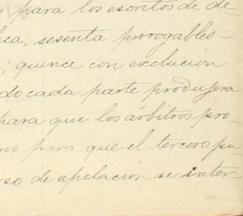 para los escritos de de-
ca; sesenta prorogables
; quince con exclucion
do cada parte produjera
para que los árbitros pro-
no para que el tercero
rso de apelacion se inter